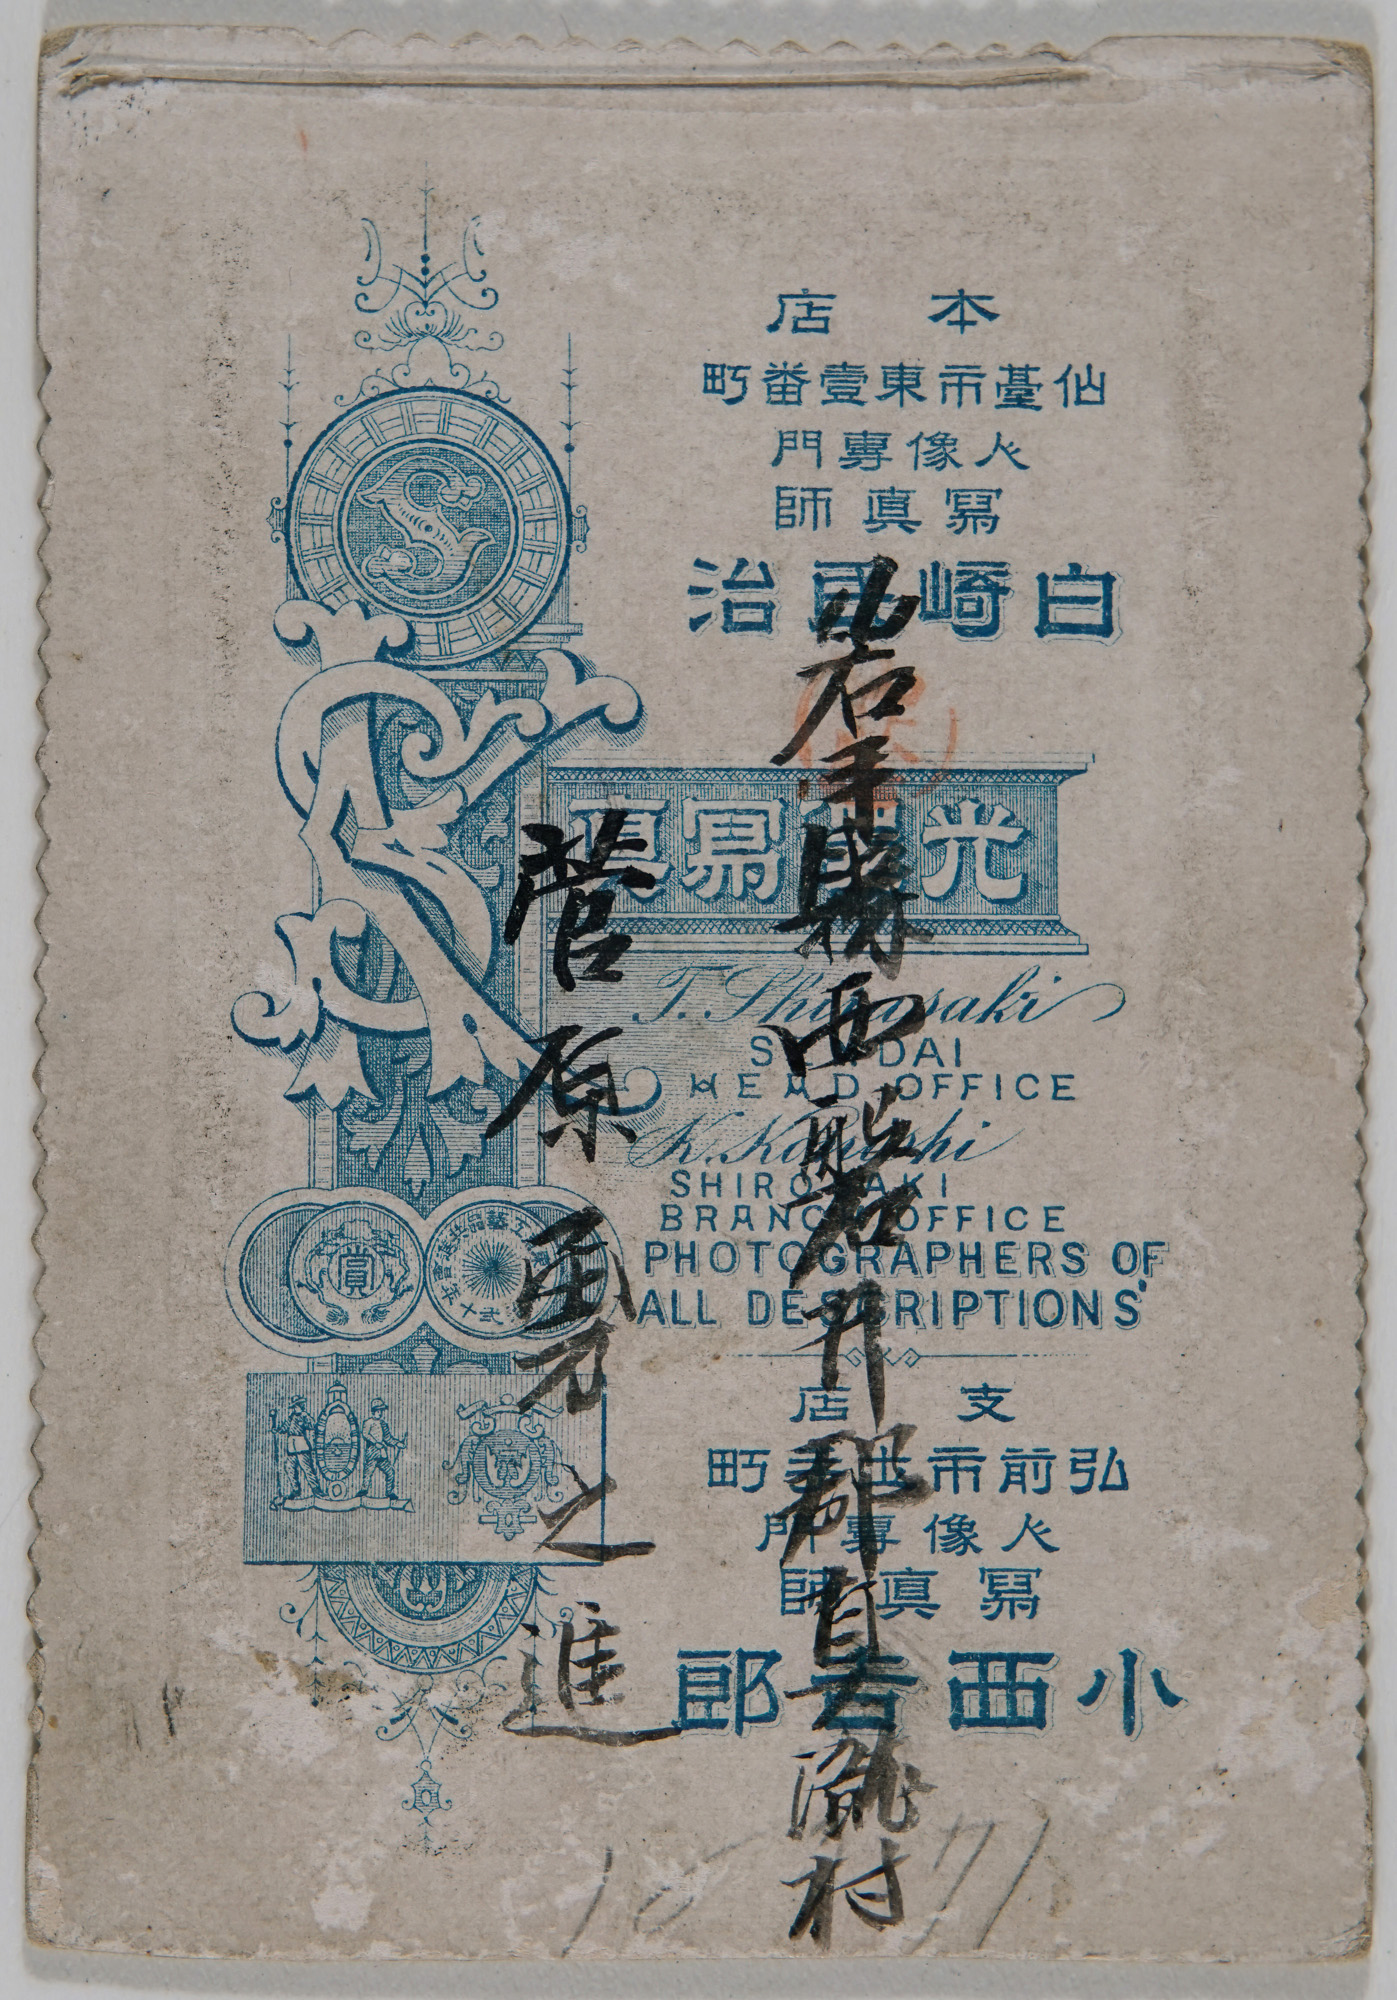 本店
仙臺市東壹番町
人像專門
寫眞師
白崎民治
光彩寫眞
T. Shirasaki
SENDAI
HEAD OFFICE
K. Konishi
SHIROSAKI
BRANCH OFFICE
PHOTOGRAPHERS OF
ALL DESCRIPTIONS
支店
弘前市土手町
人像專門
寫眞師
小西吉郎
岩手縣西磐井郡真瀧村
菅原勇之進
S
賞